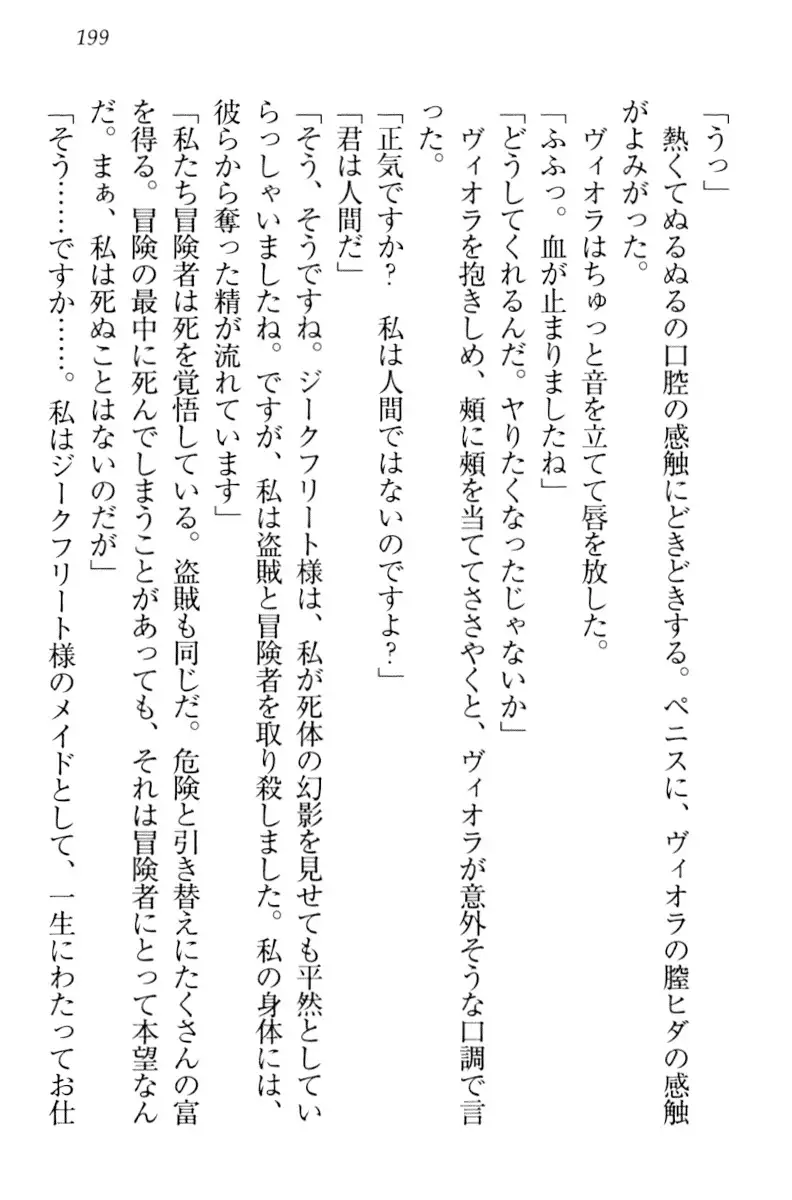 199
「うっ」
　熱くてぬるぬるの口腔の感触にどきどきする。ペニスに、ヴィオラの膣ヒダの感触
がよみがった。
　ヴィオラはちゅっと音を立てて唇を放した。
「ふふっ。血が止まりましたね」
「どうしてくれるんだ。ヤりたくなったじゃないか」
　ヴィオラを抱きしめ、頰に頰を当ててささやくと、ヴィオラが意外そうな口調で言
った。
「正気ですか？　私は人間ではないのですよ？」
「君は人間だ」
「そう、そうですね。ジークフリート様は、私が死体の幻影を見せても平然としてい
らっしゃいましたね。ですが、私は盗賊と冒険者を取り殺しました。私の身体には、
彼らから奪った精が流れています」
「私たち冒険者は死を覚悟している。盗賊も同じだ。危険と引き替えにたくさんの富
を得る。冒険の最中に死んでしまうことがあっても、それは冒険者にとって本望なん
だ。まぁ、私は死ぬことはないのだが」
「そう……ですか……。私はジークフリート様のメイドとして、一生にわたってお仕